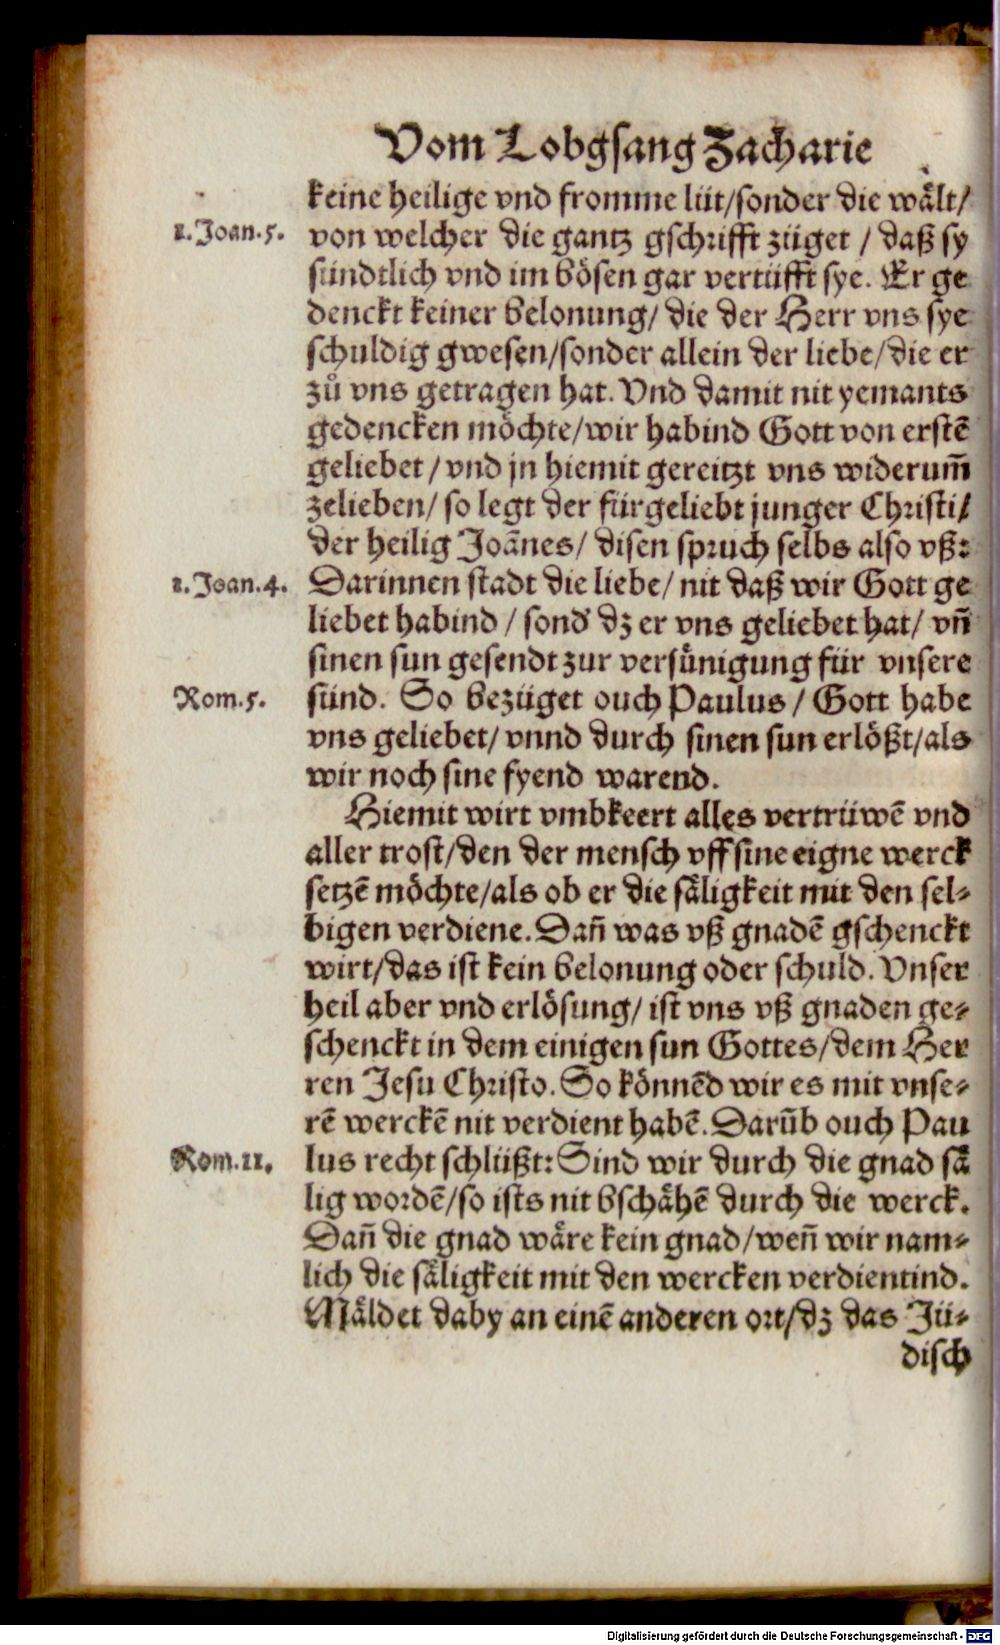 Vom Lobgsang Zacharie
keine heilige vnd fromme lüt/sonder die wält/
1. Joan. 5. von welcher die gantz gschrifft züget / daß sy
sündtlich vnd im bösen gar vertüfft sye. Er ge
denckt keiner belonung/ die der Herr vns sye
schuldig gwesen/sonder allein der liebe/die er
zů vns getragen hat. Vnd damit nit yemants
gedencken möchte/wir habind Gott von erstē
geliebet / vnd jn hiemit gereitzt vns widerum̄
zelieben/ so legt der fürgeliebt junger Christi/
der heilig Joānes/ disen spruch selbs also vß:
1. Joan. 4. Darinnen stadt die liebe/ nit daß wir Gott ge
liebet habind / sond' dz er vns geliebet hat/ vn̄
sinen sun gesendt zur versünigung für vnsere
Rom. 5. sünd. So bezüget ouch Paulus / Gott habe
vns geliebet/ vnnd durch sinen sun erlößt/als
wir noch sine fyend warend.
Hiemit wirt vmbkeert alles vertrüwē vnd
aller trost/den der mensch vff sine eigne werck
setzē möchte/als ob er die säligkeit mit den sel⸗
bigen verdiene. Dan̄ was vß gnadē gschenckt
wirt/das ist kein belonung oder schuld. Vnser
heil aber vnd erlösung/ ist vns vß gnaden ge⸗
schenckt in dem einigen sun Gottes/dem Her
ren Jesu Christo. So könnēd wir es mit vnse⸗
rē werckē nit verdient habē. Darūb ouch Pau
Rom. 11. lus recht schlüßt: Sind wir durch die gnad sä
lig wordē/so ists nit bschähē durch die werck.
Dan̄ die gnad wäre kein gnad/wen̄ wir nam⸗
lich die säligkeit mit den wercken verdientind.
Mäldet daby an einē anderen ort/dz das Jü⸗
disch
Digitalisierung gefördert durch die Deutsche Forschungsgemeinschaft - DFG